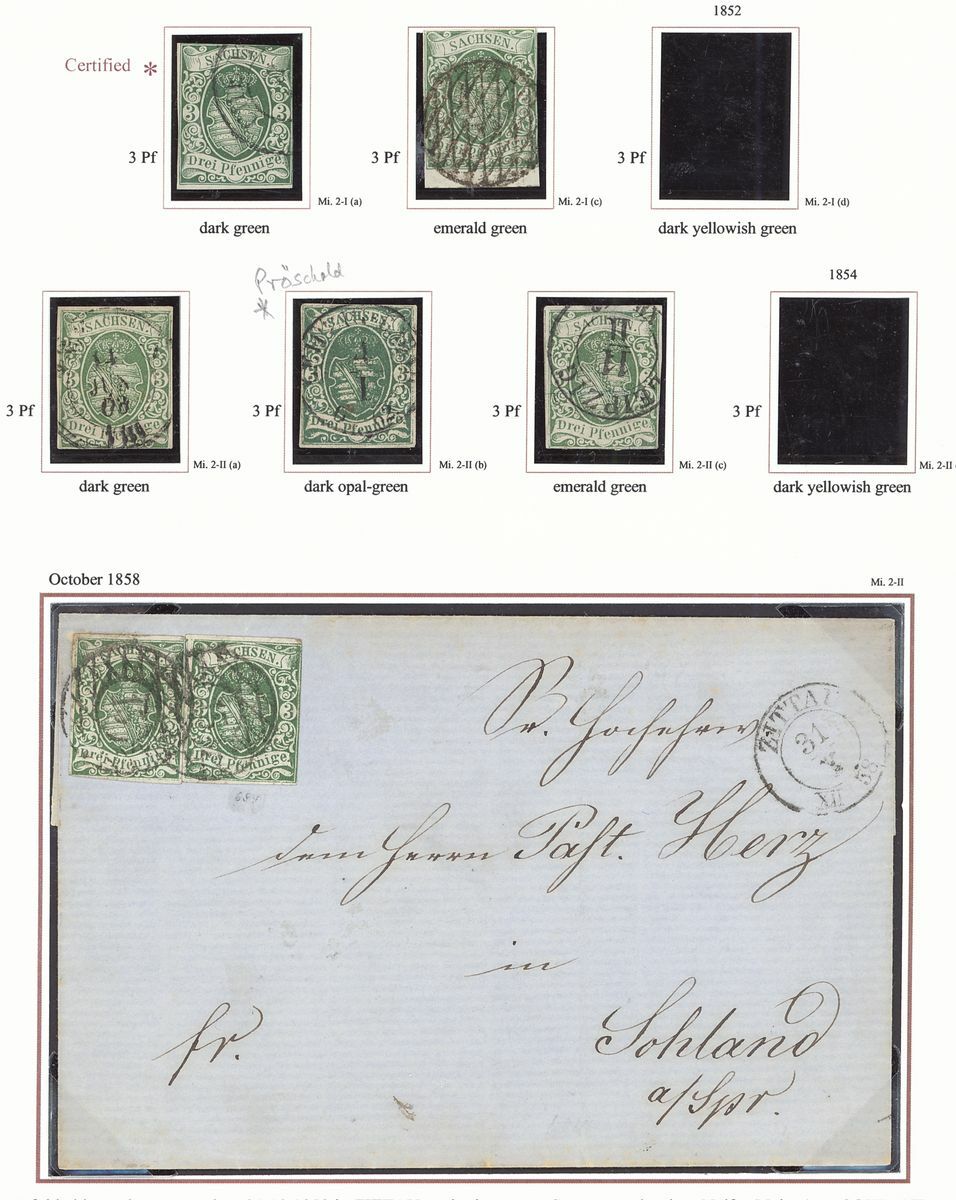 1852
Certified *
SACHSEN.
3 3
Drei Pfennige
3 Pf
Mi. 2-I (a)
dark green
SACHSEN.
3 Pf
Mi. 2-I (c)
emerald green
3 Pf
Mi. 2-I (d)
dark yellowish green
Pröschold
*
1854
SACHSEN.
3 3
Drei Pfennige
3 Pf
Mi. 2-II (a)
dark green
SACHSEN.
3 3
Drei Pfennige
3 Pf
Mi. 2-II (b)
dark opal-green
SACHSEN.
3 3
Drei Pfennige
LEIPZIG
11
II
3 Pf
Mi. 2-II (c)
emerald green
3 Pf
Mi. 2-II
dark yellowish green
October 1858
Mi. 2-II
SACHSEN.
Drei Pfennige
SACHSEN.
3
Drei Pfennige
ZITTAU
31
58
Sr. Hochehrw
dem Herrn Past. Herz
in
fr.
Sohland
a/Spr.